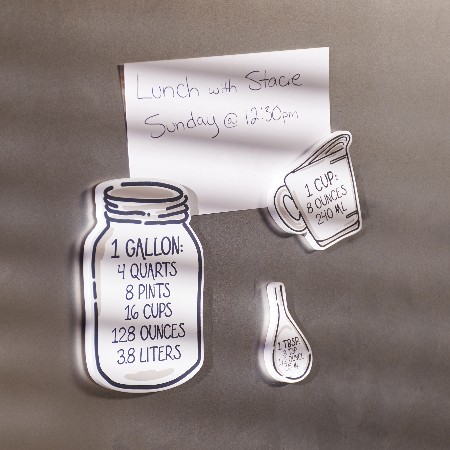 Lunch with Stacie
Sunday @ 12:30pm
1 CUP:
8 OUNCES
240 ML
1 GALLON:
4 QUARTS
8 PINTS
16 CUPS
128 OUNCES
3.8 LITERS
1 TBSP:
3 TSP